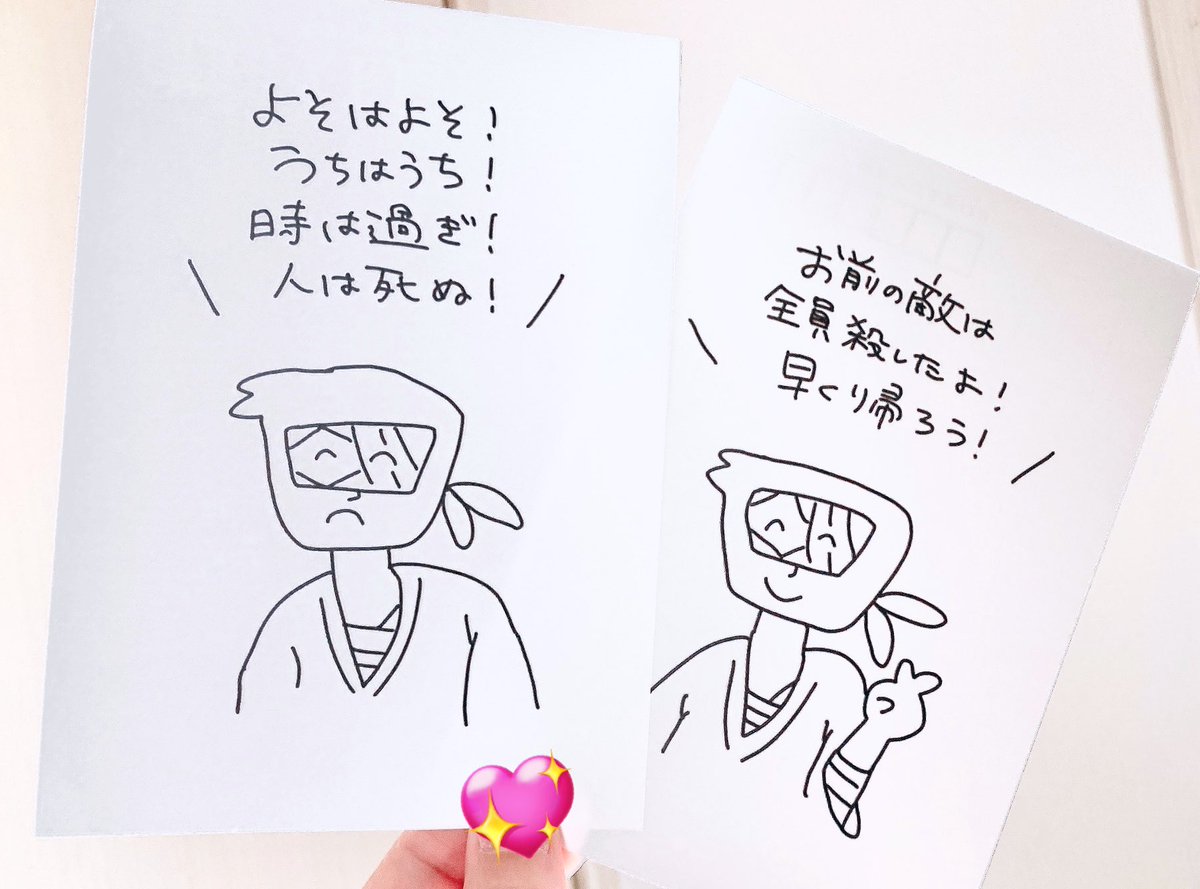 よそはよそ！
うちはうち！
時は過ぎ！
人は死ぬ！
お前の敵は
全員殺したよ！
早くり帰ろう！